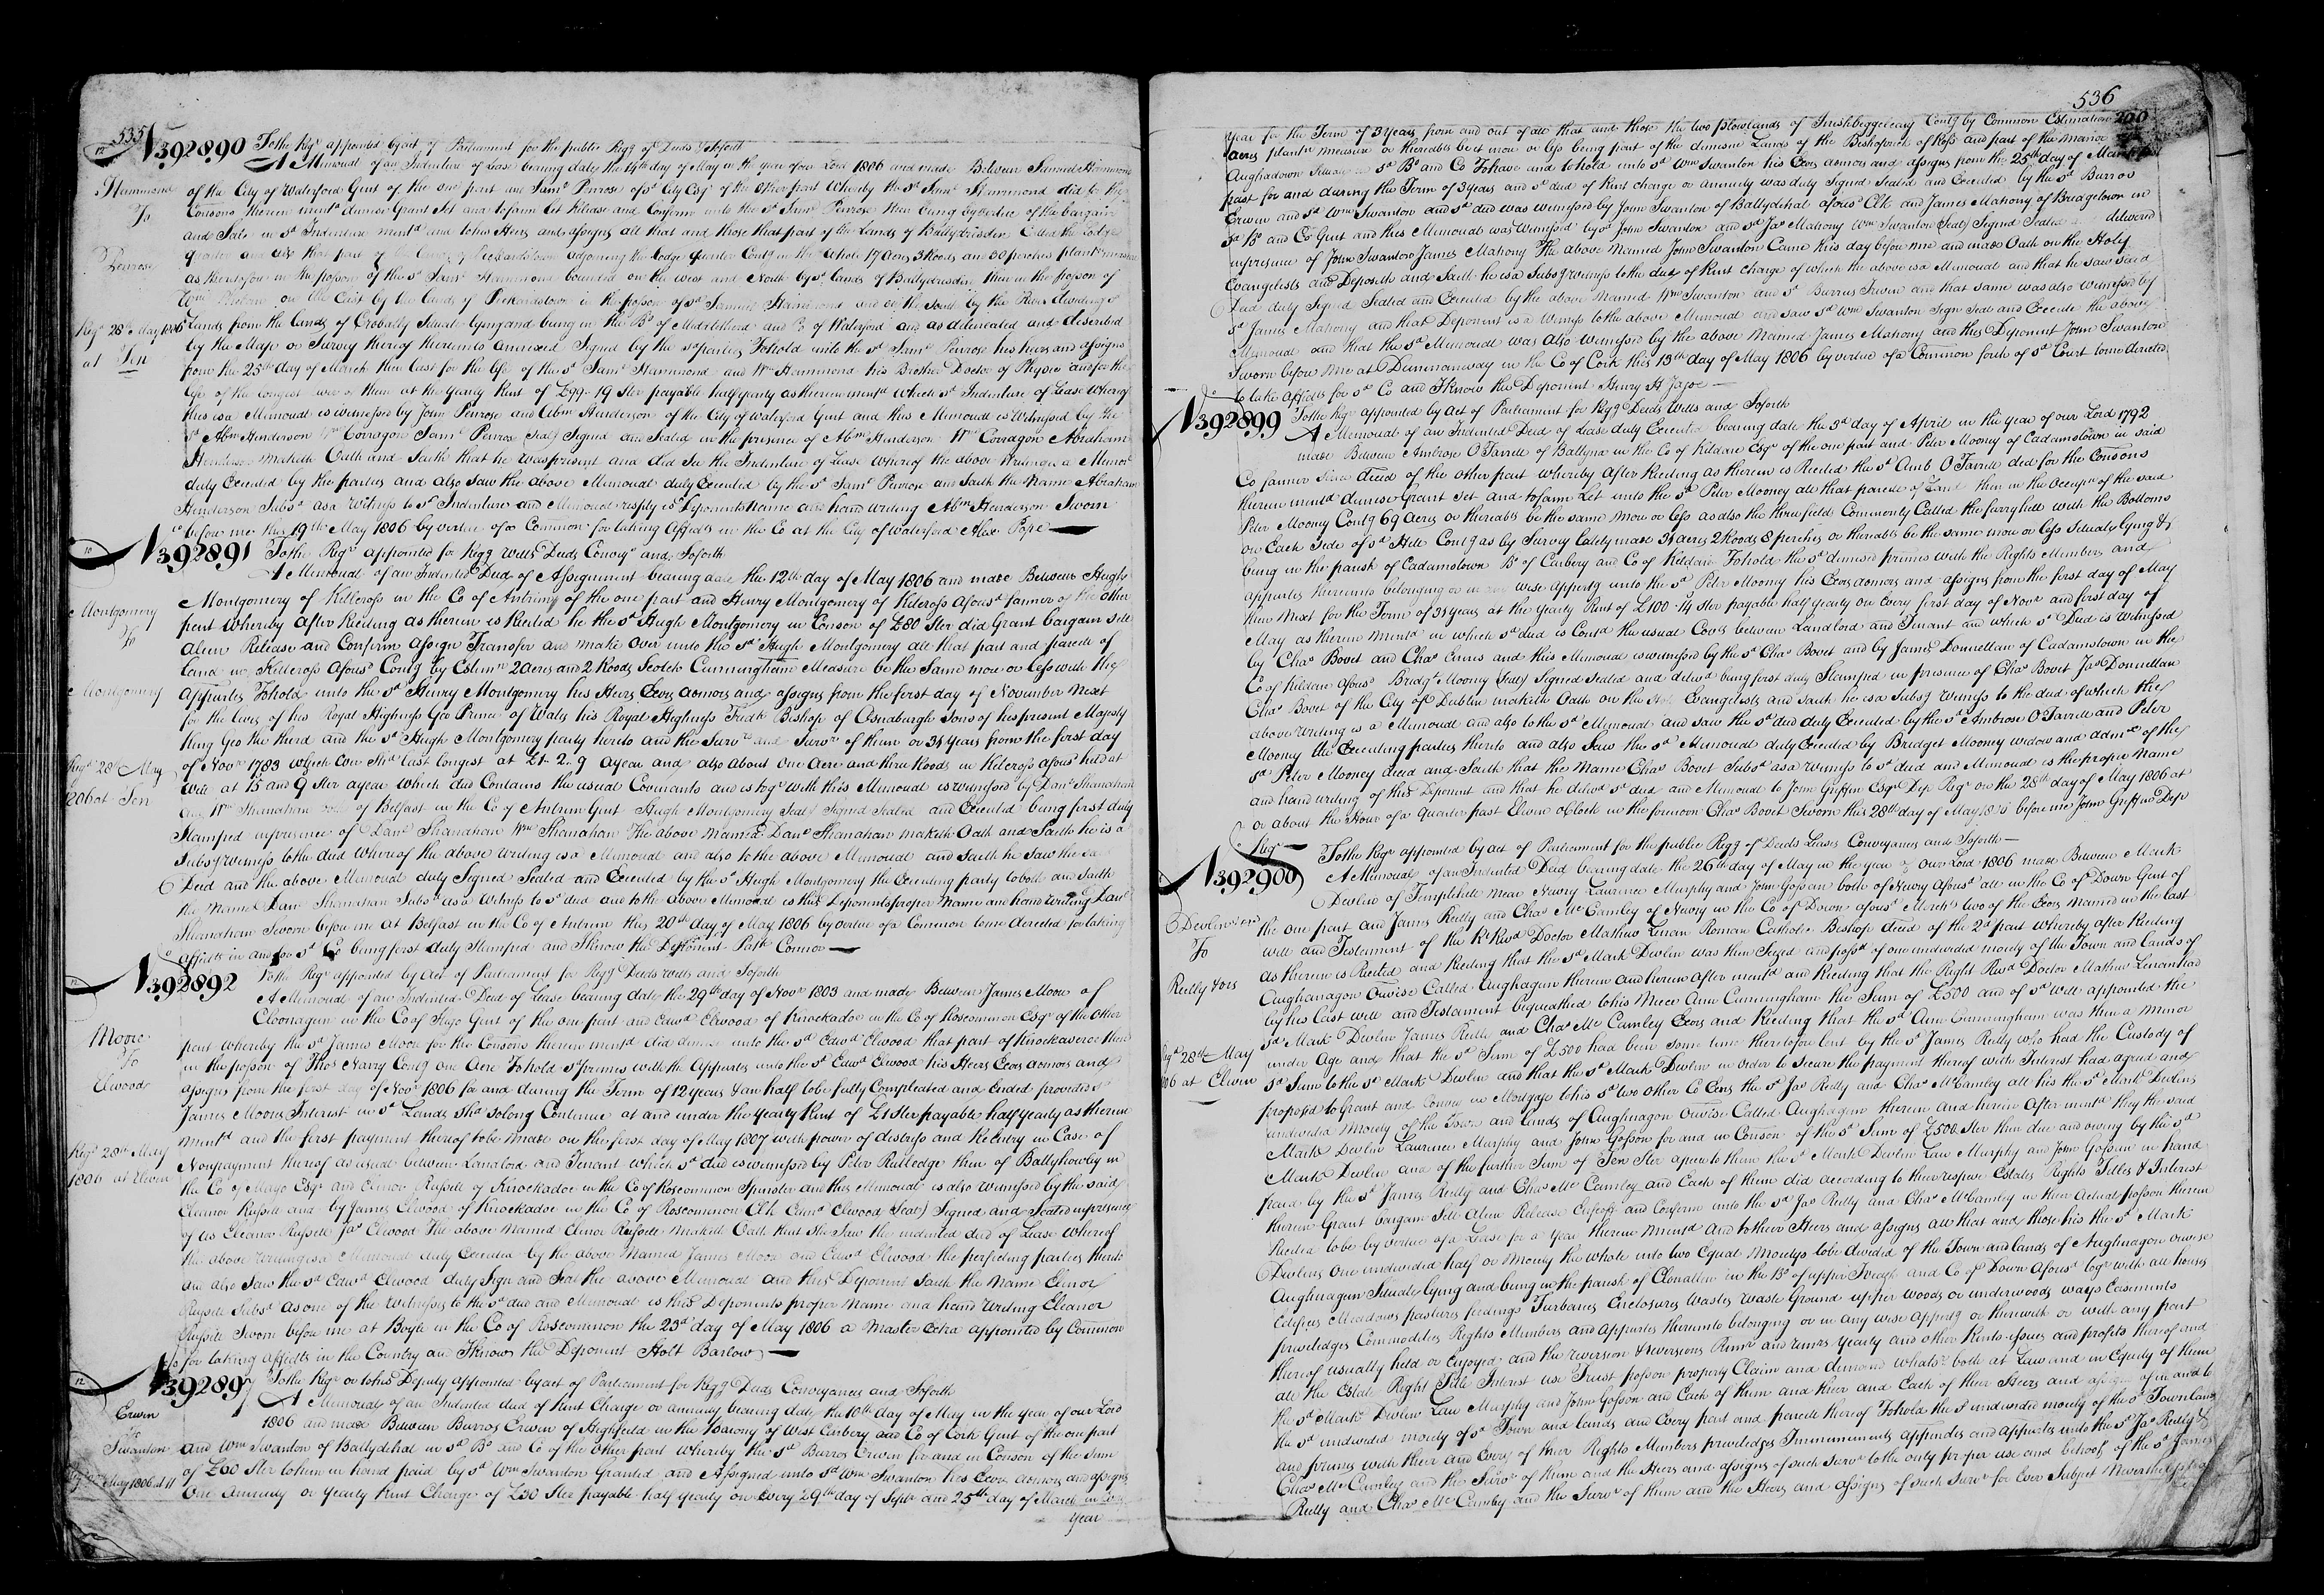 535
No 392890 To the Regr appointed by act of Parliament for the public Regg of Deeds & soforth
A Memorial of an Indenture of Lease bearing date the 14th day of May in the year of our Lord 1806 and made Between Samuel Hammond
Hammond
To
Penrose
Regd 28th May 1806
at Ten
of the City of Waterford Gent of the one part and Saml Penrose of sd City Esqr of the other part Whereby the sd Saml Hammond did for the
Consons therein mentd demise Grant Set and tofarm let Release and Confirm unto the sd Saml Penrose then being by vertue of the bargain
and Sale in sd Indenture mentd and to his Heirs and assigns all that and those that part of the Lands of Ballydrisden Called the Lodge
quarter and also that part of the lands of Pickardstown adjoining the lodge quarter Contg in the whole 17 acres 3 Roods and 30 perches plantn measure
as theretofore in the posson of the sd Saml Hammond bounded on the west and North by sd lands of Ballydrisden then in the posson of
on the East by the lands of Pickardstown in the posson of sd Samuel Hammond and on the South by the River dividing sd
Lands from the lands of Crobally Situate lying and being in the By of Middlethird and Co of Waterford and as delineated and described
by the Map or Survey thereof thereunto annexed Signed by the sd parties Tohold unto the sd Saml Penrose his heirs and assigns
from the 25th day of March then last for the life of the sd Saml Hammond and Wm Hammond his Brother Doctor of Physic and for the
life of the longest liver of them at the yearly Rent of £99-19 Ster payable halfyearly as therein mentd Which sd Indenture of Lease whereof
this is a Memorial is witnessed by John Penrose and Abm Henderson of the City of Waterford Gent and this Memorial is Witnessed by the
sd Abm Henderson Wm Corragon Saml Penrose (Seal) Signed and Sealed in the presence of Abm Henderson Wm Corragon Abraham
Henderson Maketh Oath and Saith that he was present and did See the Indenture of Lease Whereof the above Writing is a Memorl
duly Executed by the parties and also saw the above Memorial duly Executed by the sd Saml Penrose and Saith the Name Abraham
Henderson Subsd as a Witness to sd Indenture and Memorial resply is Deponents Name and hand writing Abm Henderson Sworn
before me this 19th May 1806 by vertue of a Common for taking Affidts in the Co at the City of Waterford Alexr Pope
No 392891 To the Regr appointed for Regg Wills Deeds Conveys and Soforth
A Memorial of an Indented Deed of Assignment bearing date the 12th day of May 1806 and made Between Hugh
Montgomery
To
Montgomery
Regd 28th May
1806 at Ten
Montgomery of Killcross in the Co of Antrim of the one part and Henry Montgomery of Kilcross aforesd farmer of the other
part Whereby after Reciting as therein is Recited he the sd Hugh Montgomery in Conson of £80 Ster did Grant bargain sell
alien Release and Confirm assign Transfer and make over unto the sd Hugh Montgomery all that part and parcell of
land in Killcross aforesd Contg by Estimn 2 acres and 2 Roods Scotch Cunningham Measure be the Same more or less with the
Appurtes Tohold unto the sd Henry Montgomery his Heirs Exors admors and assigns from the first day of November Next
for the lives of his Royal Highness Geo Prince of Wales his Royal Highness Fredk Bishop of Osnaburgh Sons of his present Majesty
King Geo the third and the sd Hugh Montgomery party hereto and the Survr and Survrs of them or 31 years from the first day
of Novr 1783 which Ever Shd last longest at £1-2-9 a year and also about One Acre and three Roods in Kilcross aforesd held at
Will at 15 and 9 Ster a year which deed Contains the usual Covenants and is togr with this Memorial is witnessed by Danl Shanahan
and Wm Shanahan both of Belfast in the Co of Antrim Gent Hugh Montgomery (Seal) Signed Sealed and Executed being first duly
Stamped in presence of Danl Shanahan Wm Shanahan The above Named Danl Shanahan Maketh Oath and Saith he is a
Subsg Witness to the deed whereof the above writing is a Memorial and also to the above Memorial and Saith he Saw the said
Deed and the above Memorial duly Signed Sealed and Executed by the sd Hugh Montgomery the Executing party to both and Saith
the Name Danl Shanahan Subsd as a Witness to sd deed and to the above Memorial is this Deponents proper Name and hand writing Danl
Shanahan Sworn before me at Belfast in the Co of Antrim this 20th day of May 1806 by vertue of a Common to me directed for taking
Affidts in and for sd Co being first duly Stamped and I know the Deponent Patk Connor
No 392892 To the Regr appointed by act of Parliament for Regg Deeds Wills and Soforth
A Memorial of an Indented Deed of Lease bearing date the 29th day of Novr 1803 and made Between James Moore of
Cloonagun in the Co of Sligo Gent of the one part and Edwd Elwood of Knockadoe in the Co of Roscommon Esqr of the other
Moore
To
Elwood
Regd 28th May
1806 at Eleven
part whereby the sd James Moore for the Consons therein mentd did demise unto the sd Edwd Elwood that part of Knockaveroe then
in the posson of Thos Narry Contg one Acre Tohold sd premes with the Appurtes unto the sd Edwd Elwood his Heirs Exors admors and
assigns from the first day of Novr 1806 for and during the Term of 12 years & an half to be fully Compleated and Ended provided sd
James Moores Interest in sd Lands shd solong Continue at and under the yearly Rent of £1 Ster payable halfyearly as therein
mentd and the first payment thereof to be made on the first day of May 1807 with power of distress and ReEntry in Case of
Nonpayment thereof as usual between Landlord and Tenant which sd deed is witnessed by Peter Rutledge then of Ballyhowley in
the Co of Mayo Esqr and Elinor Russell of Knockadoe in the Co of Roscommon Spinster and this Memorial is also Witnessed by the said
Eleanor Russell and by James Elwood of Knockadoe in the Co of Roscommon Clk Edwd Elwood (Seal) Signed and Sealed in presence
of us Eleanor Russell Jas Elwood The above Named Elinor Russell Maketh Oath that she Saw the indented deed of Lease whereof
the above writing is a Memorial duly Executed by the above Named James Moore and Edwd Elwood the perfecting parties thereto
and also Saw the sd Edwd Elwood duly Sign and Seal the above Memorial and this Deponent Saith the Name Elinor
Russell Subsd as one of the Witnesses to the sd deed and Memorial is this Deponents proper Name and hand Writing Eleanor
Russell Sworn before me at Boyle in the Co of Roscommon the 23d day of May 1806 a Master Extra appointed by Common
for taking affidts in the Country and I know the Deponent Holt Barlow
No 39289 To the Regr or to his Deputy appointed by act of Parliament for Regg Deeds Conveyances and Soforth
A Memorial of an Indented deed of Rent Charge or annuity bearing date the 10th day of May in the year of our Lord
1806 and made Between Burros Erwin of Highfield in the Barony of West Carbery and Co of Cork Gent of the one part
Erwin
To
Swanton
May 1806 at 11
and Wm Swanton of Ballydehal in sd By and Co of the other part whereby the sd Burros Erwin for and in Conson of the Sum
of £60 Ster to him in hand paid by sd Wm Swanton Granted and Assigned unto sd Wm Swanton his Exors admors and assigns
One Annuity or yearly Rent Charge of £30 Ster payable half yearly on Every 29th day of Septr and 25th day of March in Each
year
536
year for the Term of 3 years from and out of all that and those the two plowlands of Inishbeggeleary Contg by Common Estimation 290
acres plantn measure or thereabts be it more or less being part of the demesne Lands of the Bishoprick of Ross and part of the Manor
Aughadown Situate in sd By and Co Tohave and tohold unto sd Wm Swanton his Exors admors and assigns from the 25th day of March
past for and during the Term of 3 years and sd deed of Rent charge or annuity was duly Signed Sealed and Executed by the sd Burros
Erwin and sd Wm Swanton and sd deed was witnessed by John Swanton of Ballydehal aforesd Clk and James Mahony of Bridgetown in
sd By and Co Gent and this Memorial was Witnessed by sd John Swanton and sd Jas Mahony Wm Swanton (Seal) Signed Sealed delivered
in presence of John Swanton James Mahony The above Named John Swanton Came this day before me and made Oath on the Holy
Evangelists and Deposeth and Saith he is a Subsg Witness to the deed of Rent charge of which the above is a Memorial and that he saw said
Deed duly Signed Sealed and Executed by the above Named Wm Swanton and sd Burros Irwin and that same was also witnessed by
sd James Mahony and that Deponent is a Witness to the above Memorial and saw sd Wm Swanton Sign Seal and Execute the above
Memorial and that the sd Memorial was also witnessed by the above Named James Mahony and this Deponent John Swanton
Sworn before me at Dunmanway in the Co of Cork this 13th day of May 1806 by vertue of a Common forth of sd Court to me directed
to take affidts for sd Co and I know the Deponent Henry H Jagoe
No 392899 To the Regr appointed by act of Parliament for Regg Deeds Wills and Soforth
A Memorial of an Indented Deed of Lease duly Executed bearing date the 3d day of April in the year of our Lord 1792
made Between Ambrose O'Farrell of Ballyna in the Co of Kildare Esqr of the one part and Peter Mooney of Cadamstown in said
Co farmer Since decd of the other part whereby after Reciting as therein is Recited the sd Amb O'Farrell did for the Consons
therein mentd demise Grant Set and tofarm Let unto the sd Peter Mooney all that parcell of Land then in the Occupn of the said
Peter Mooney Contg 69 acres or thereabts be the same more or less as also the three field Commonly Called the furry hill with the Bottoms
on Each Side of sd Hill Contg as by Survey lately made 31 acres 2 Roods 8 perches or thereabts be the same more or less Situate lying &
being in the parish of Cadamstown By of Carbery and Co of Kildare Tohold the sd demised premes with the Rights Members and
appurtes thereunto belonging or in any wise appertg unto the sd Peter Mooney his Exors admors and assigns from the first day of May
then Next for the Term of 31 years at the yearly Rent of £100-14 Ster payable half yearly on Every first day of Novr and first day of
May as therein mentd in which sd deed is Contd the usual Covts between Landlord and Tenant and which sd Deed is Witnessed
by Chas Bovet and Chas Ennis and this Memorial is witnessed by the sd Chas Bovet and by James Donnellan of Cadamstown in the
Co of Kildare aforesd Bridgt Mooney (Seal) Signed Sealed and delivd being first duly Stamped in presence of Chas Bovet Jas Donnellan
Chas Bovet of the City of Dublin maketh Oath on the Holy Evangelists and saith he is a Subsg Witness to the deed of which the
above Writing is a Memorial and also to the sd Memorial and saw the sd deed duly Executed by the sd Ambrose O'Farrell and Peter
Mooney the Executing parties thereto and also Saw the sd Memorial duly Executed by Bridget Mooney widow and admx of the
sd Peter Mooney decd and Saith that the Name Chas Bovet Subsd as a Witness to sd deed and Memorial is the proper Name
and hand writing of this Deponent and that he delivd sd deed and Memorial to John Griffin Esqr Dep Regr on the 28th day of May 1806 at
or about the Hour of a Quarter past Eleven oClock in the forenoon Chas Bovet Sworn this 28th day of May 1806 before me John Griffin Dep
Regr
No 392900 To the Regr appointed by act of Parliament for the public Regg of Deeds Leases Conveyances and Soforth
A Memorial of an Indented Deed bearing date the 26th day of May in the year of our Lord 1806 made Between Mark
Devlin of Templehill near Newry Laurence Murphy and John Gossan both of Newry aforesd all in the Co of Down Gent of
Devlin and ors
To
Reilly & ors
Regd 28th May
1806 at Eleven
the one part and James Reilly and Chas McCamley of Newry in the Co of Down aforesd Merchts two of the Exors Named in the last
will and Testament of the Rt Revd Doctor Mathew Lenan Roman Catholic Bishop decd of the 2d part whereby after Reciting
as therein is Recited and Reciting that the sd Mark Devlin was then Seized and possd of one undivided moiety of the Town and lands of
Aughanagon Orwise Called Aughagan therein and herein after mentd and Reciting that the Right Revd Doctor Mathew Lenan had
by his Last will and Testament bequeathed to his Niece Ann Cunningham the Sum of £500 and of sd Will appointed the
sd Mark Devlin James Reilly and Chas McCamley Exors and Reciting that the sd Ann Cunningham was then a Minor
under Age and that the sd Sum of £500 had been some time theretofore lent by the sd James Reilly who had the Custody of
sd Sum to the sd Mark Devlin and that the sd Mark Devlin in order to Secure the payment thereof with Interest had agreed and
proposed to Grant and Convey in Mortgage to his sd two other Co Exors the sd Jas Reilly and Chas McCamley all his the sd Mark Devlins
undivided Moiety of the Town and lands of Aughnagon Orwise Called Aughagan therein and herein after mentd they the said
Mark Devlin Laurence Murphy and John Gossan for and in Conson of the sd Sum of £500 Ster then due and owing by the sd
Mark Devlin and of the further Sum of Ten Ster apiece to them the sd Mark Devlin Law Murphy and John Gossan in hand
paid by the sd James Reilly and Chas McCamley and Each of them did according to their respive Estates Rights Titles & Interest
therein Grant bargain Sell Alien Release Enfeoff and Confirm unto the sd Jas Reilly and Chas McCamley in their Actual posson therein
Recited to be by vertue of a Lease for a year therein Mentd and to their Heirs and assigns all that and those his the sd Mark
Devlins One undivided half or Moiety the whole into two Equal Moietys to be divided of the Town and lands of Aughnagon orwise
Aughnagan Situate lying and being in the parish of Clonallen in the By of upper Iveagh and Co of Down aforesd togr with all houses
Edifices Meadows pastures feedings Turbaries Enclosures Wastes waste Ground upper woods or underwoods ways Easements
priviledges Commodities Rights Members and appurtes thereunto belonging or in any wise appertg or therewith or with any part
thereof usually held or Enjoyed and the reversion & reversions Remr and remrs yearly and other Rents issues and profits thereof and
all the Estate Right Title Interest use Trust posson property Claim and demand whatsr both at Law and in Equity of them
the sd Mark Devlin Law Murphy and John Gossan and Each of them and their and Each of their Heirs and assigns of in and to
the sd undivided moiety of sd Town and lands and Every part and parcell thereof Tohold the sd undivided moiety of the sd Town lands
and premes with their and Every of their Rights Members priviledges Immunements appendes and appurtes unto the sd Jas Reilly &
Chas McCamley and the Survr of them and the Heirs and assigns of such Survr to the only proper use and behoof of the sd James
Reilly and Chas McCamley and the Survr of them and the Heirs and assigns of such Survr for Ever Subject Nevertheless to a